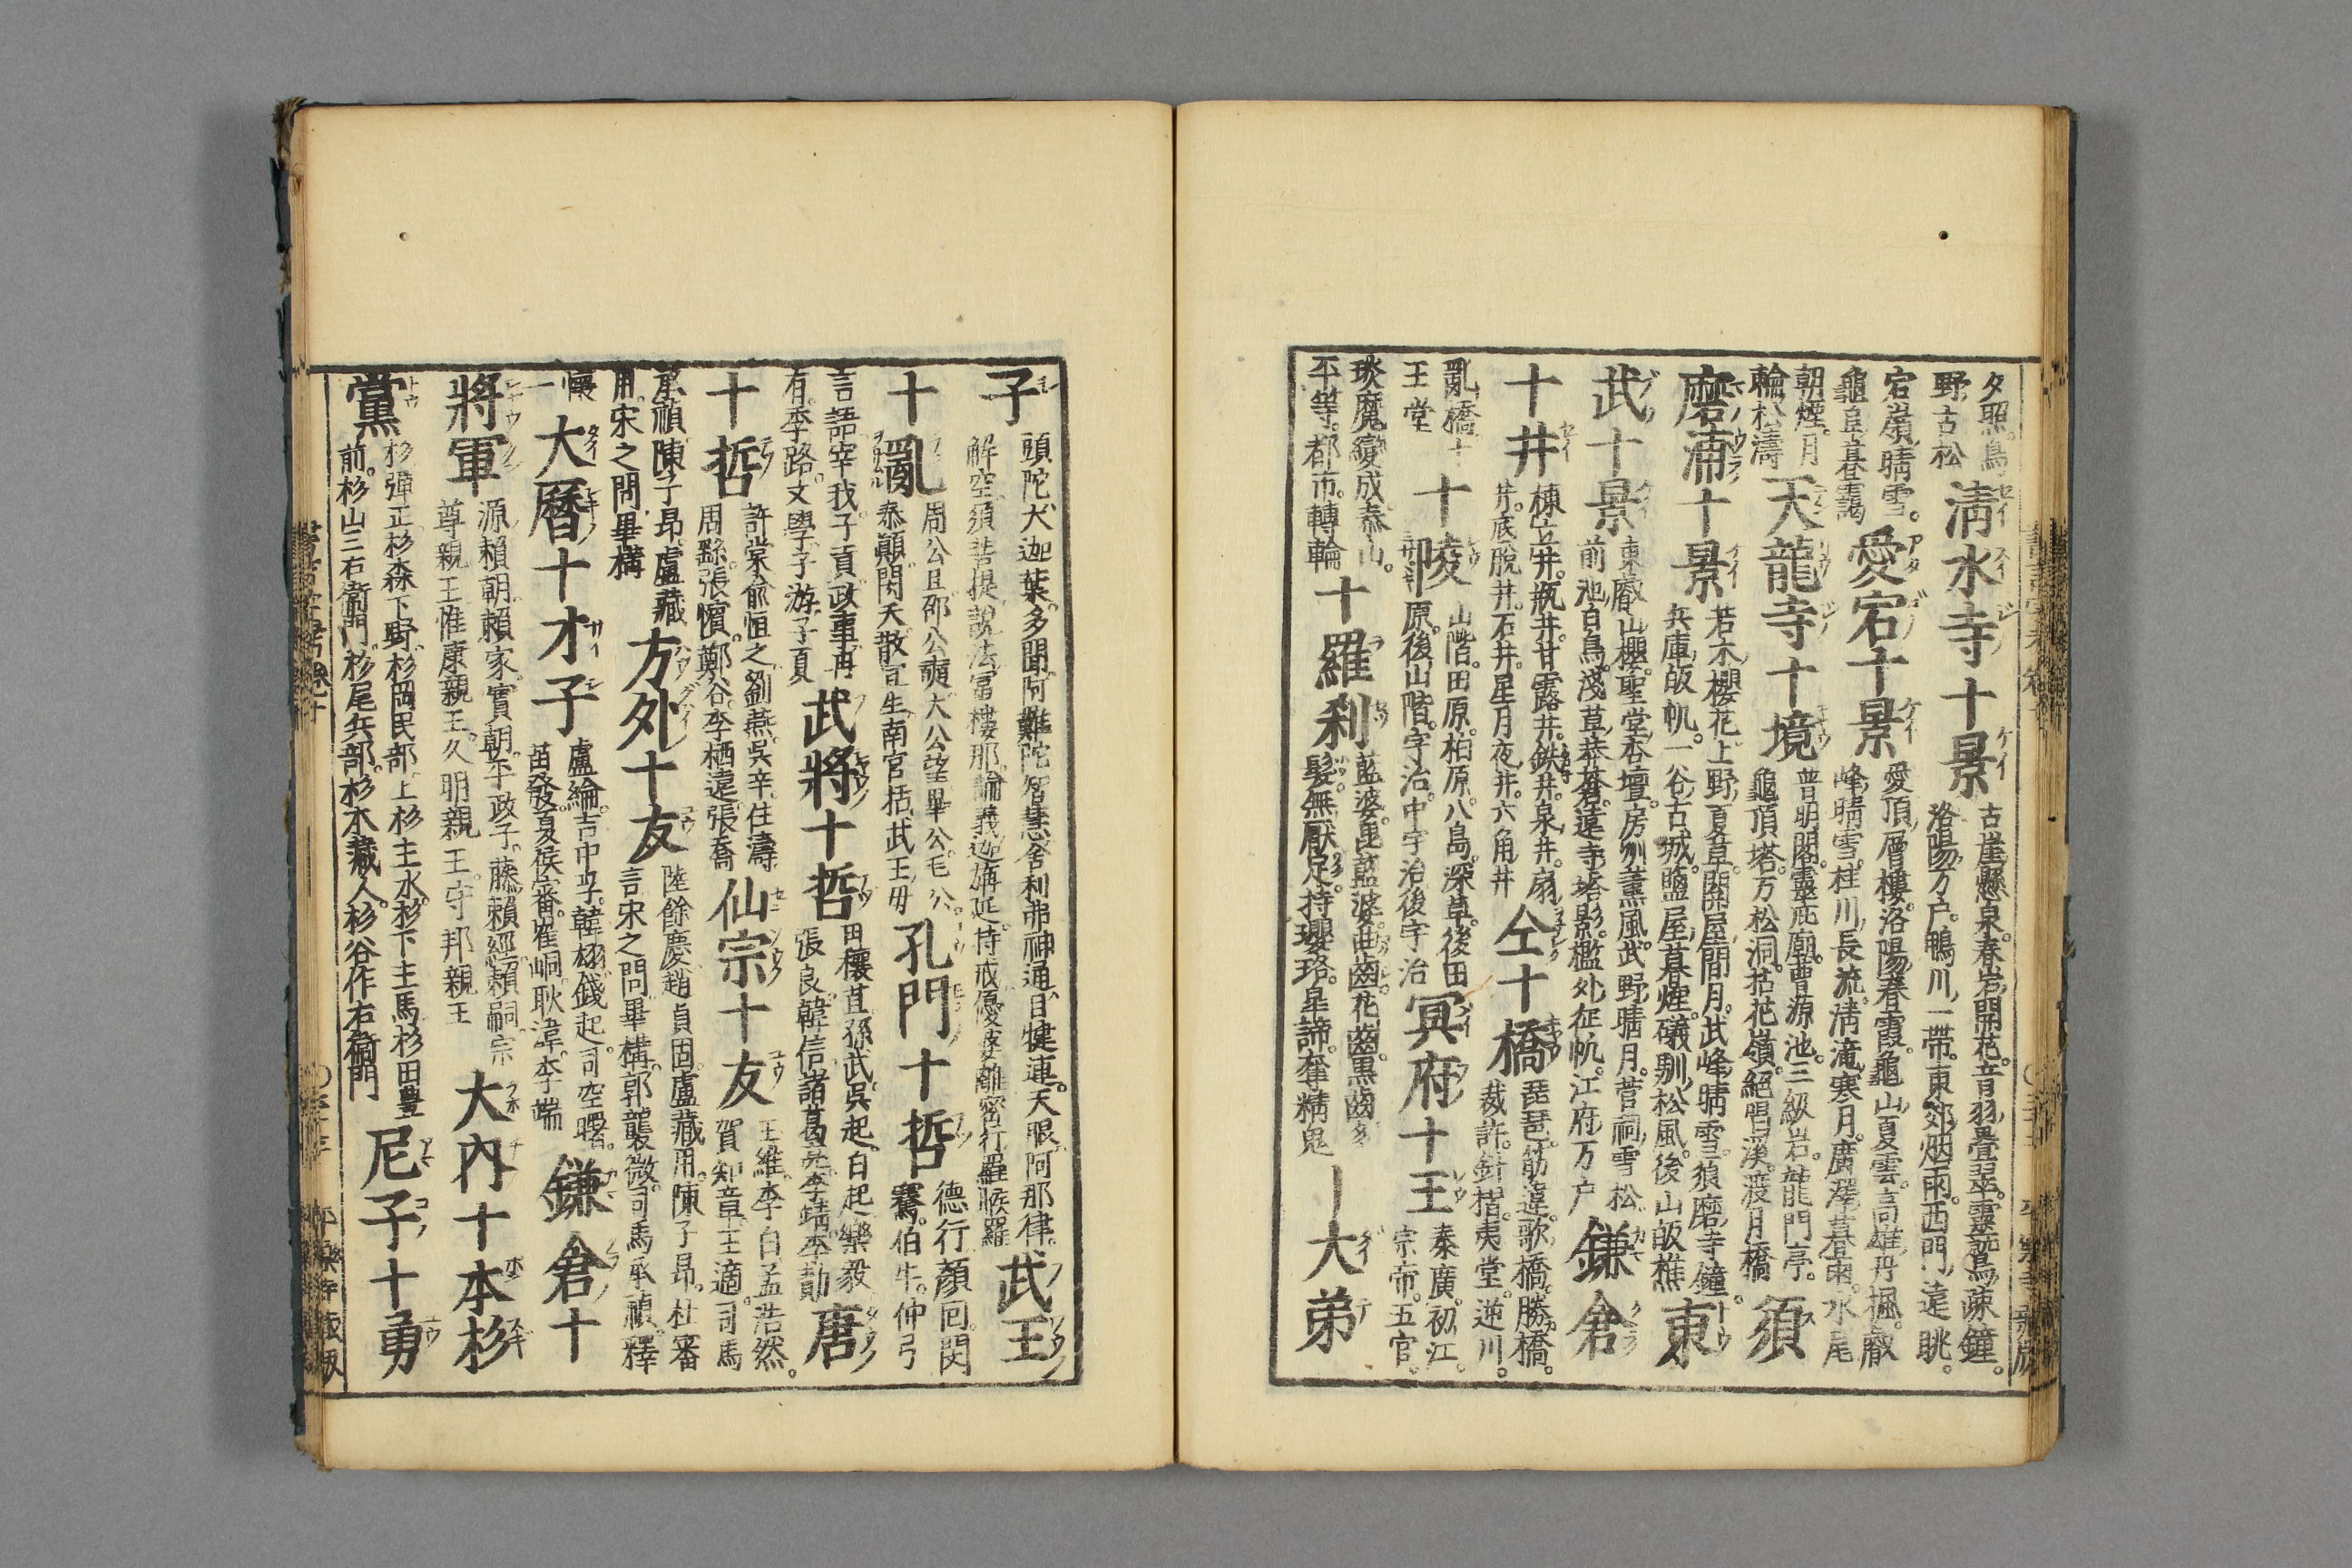 夕照。鳥
野古松
清水寺十景
古崖懸泉。春岩開花。音羽疊翠。靈鷲疎鐘。
洛陽万户。鴨川一帶。東郊烟雨。西門遠眺。
宕嶺晴雪。
愛宕十景
愛頂層樓。洛陽春霞。龜山夏雲。高雄丹楓。
峰晴雪。桂川長流。清滝寒月。廣澤暮雨。水尾
朝煙。月
輪松濤
天龍寺十境
普明閣。靈庇廟。曹源池。三級岩。龍門亭。
龜頂塔。万松洞。拈花嶺。絕唱溪。渡月橋
須
磨浦十景
若木櫻花。上野夏草。關屋間月。武峰晴雪。狼磨寺鐘。
兵庫皈帆。一谷古城。鹽屋暮煙。礒馴松風。後山皈樵
東
武十景
東叡山櫻。聖堂杏壇。房刕薫風。武野晴月。菅祠雪松
前池白鳥。淺草。遠寺塔影。檻外征帆。江府万户
鎌倉
十井
棟立井。瓶井。甘露井。鉄井。泉井。扇
井。底脫井。石井。星月夜井。六角井
仝十橋
琵琶。筋違。歌橋。勝橋。
裁許。針揩。夷堂。逆川。
亂橋。十
王堂
十陵
山階。田原。柏原。八島。深草。後田
原。後山階。宇治。中宇治後宇治
冥府十王
秦廣。初江。
宗帝。五官。
琰魔。變成。泰山。
平等。都市。轉輪
十羅刹
藍婆。毘藍婆。曲齒。花齒。黒齒。多
髮。無厭足。持瓔珞。皐諦。奪精鬼
｜大弟
子
頭陀大迦葉。多聞阿難陀。智慧舍利弗。神通目犍連。天眼阿那律。
解空須菩提。說法富樓那。論義迦旃延。持戒優婆離。密行羅睺羅
武王
十亂
周公旦。邵公奭。大公望。畢公。毛公。
泰顛。閎夭。散宜生。南宮括。武王毋
孔門十哲
德行顏回。閔
騫。伯牛。仲弓
言語宰我。子貢。政事冉
有。季路。文學子游。子夏
武將十哲
田穰苴。孫武。吳起。白起。樂毅
張良。韓信。諸葛亮。李靖。李勣
唐
十哲
許棠。兪恒之。劉燕。吳辛。任濤
周繇。張蠙。鄭谷。李栖遠。張喬
仙宗十友
王維。李白。孟浩然。
賀知章。王適。司馬
承禎。陳子昂。盧藏
用。宋之問。畢構
方外十友
陸餘慶。趙貞固。盧藏用。陳子昂。杜審
言。宋之問。畢構。郭襲微。司馬承禎。釋
懷
一
大曆十才子
盧綸。吉中孚。韓翃。錢起。司空曙。
苗發。夏侯審。崔峒。耿湋。李端
鎌倉十
將軍
源賴朝。賴家。實朝。平政子。藤賴經。賴嗣。宗
尊親王。惟康親王。久明親王。守邦親王
大內十本杉
黨
杉彈正。杉森下野。杉岡民部。上杉主水。杉下主馬。杉田豊
前。杉山三右衞門。杉尾兵部。杉木藏人。杉谷作右衞門
尼子十勇